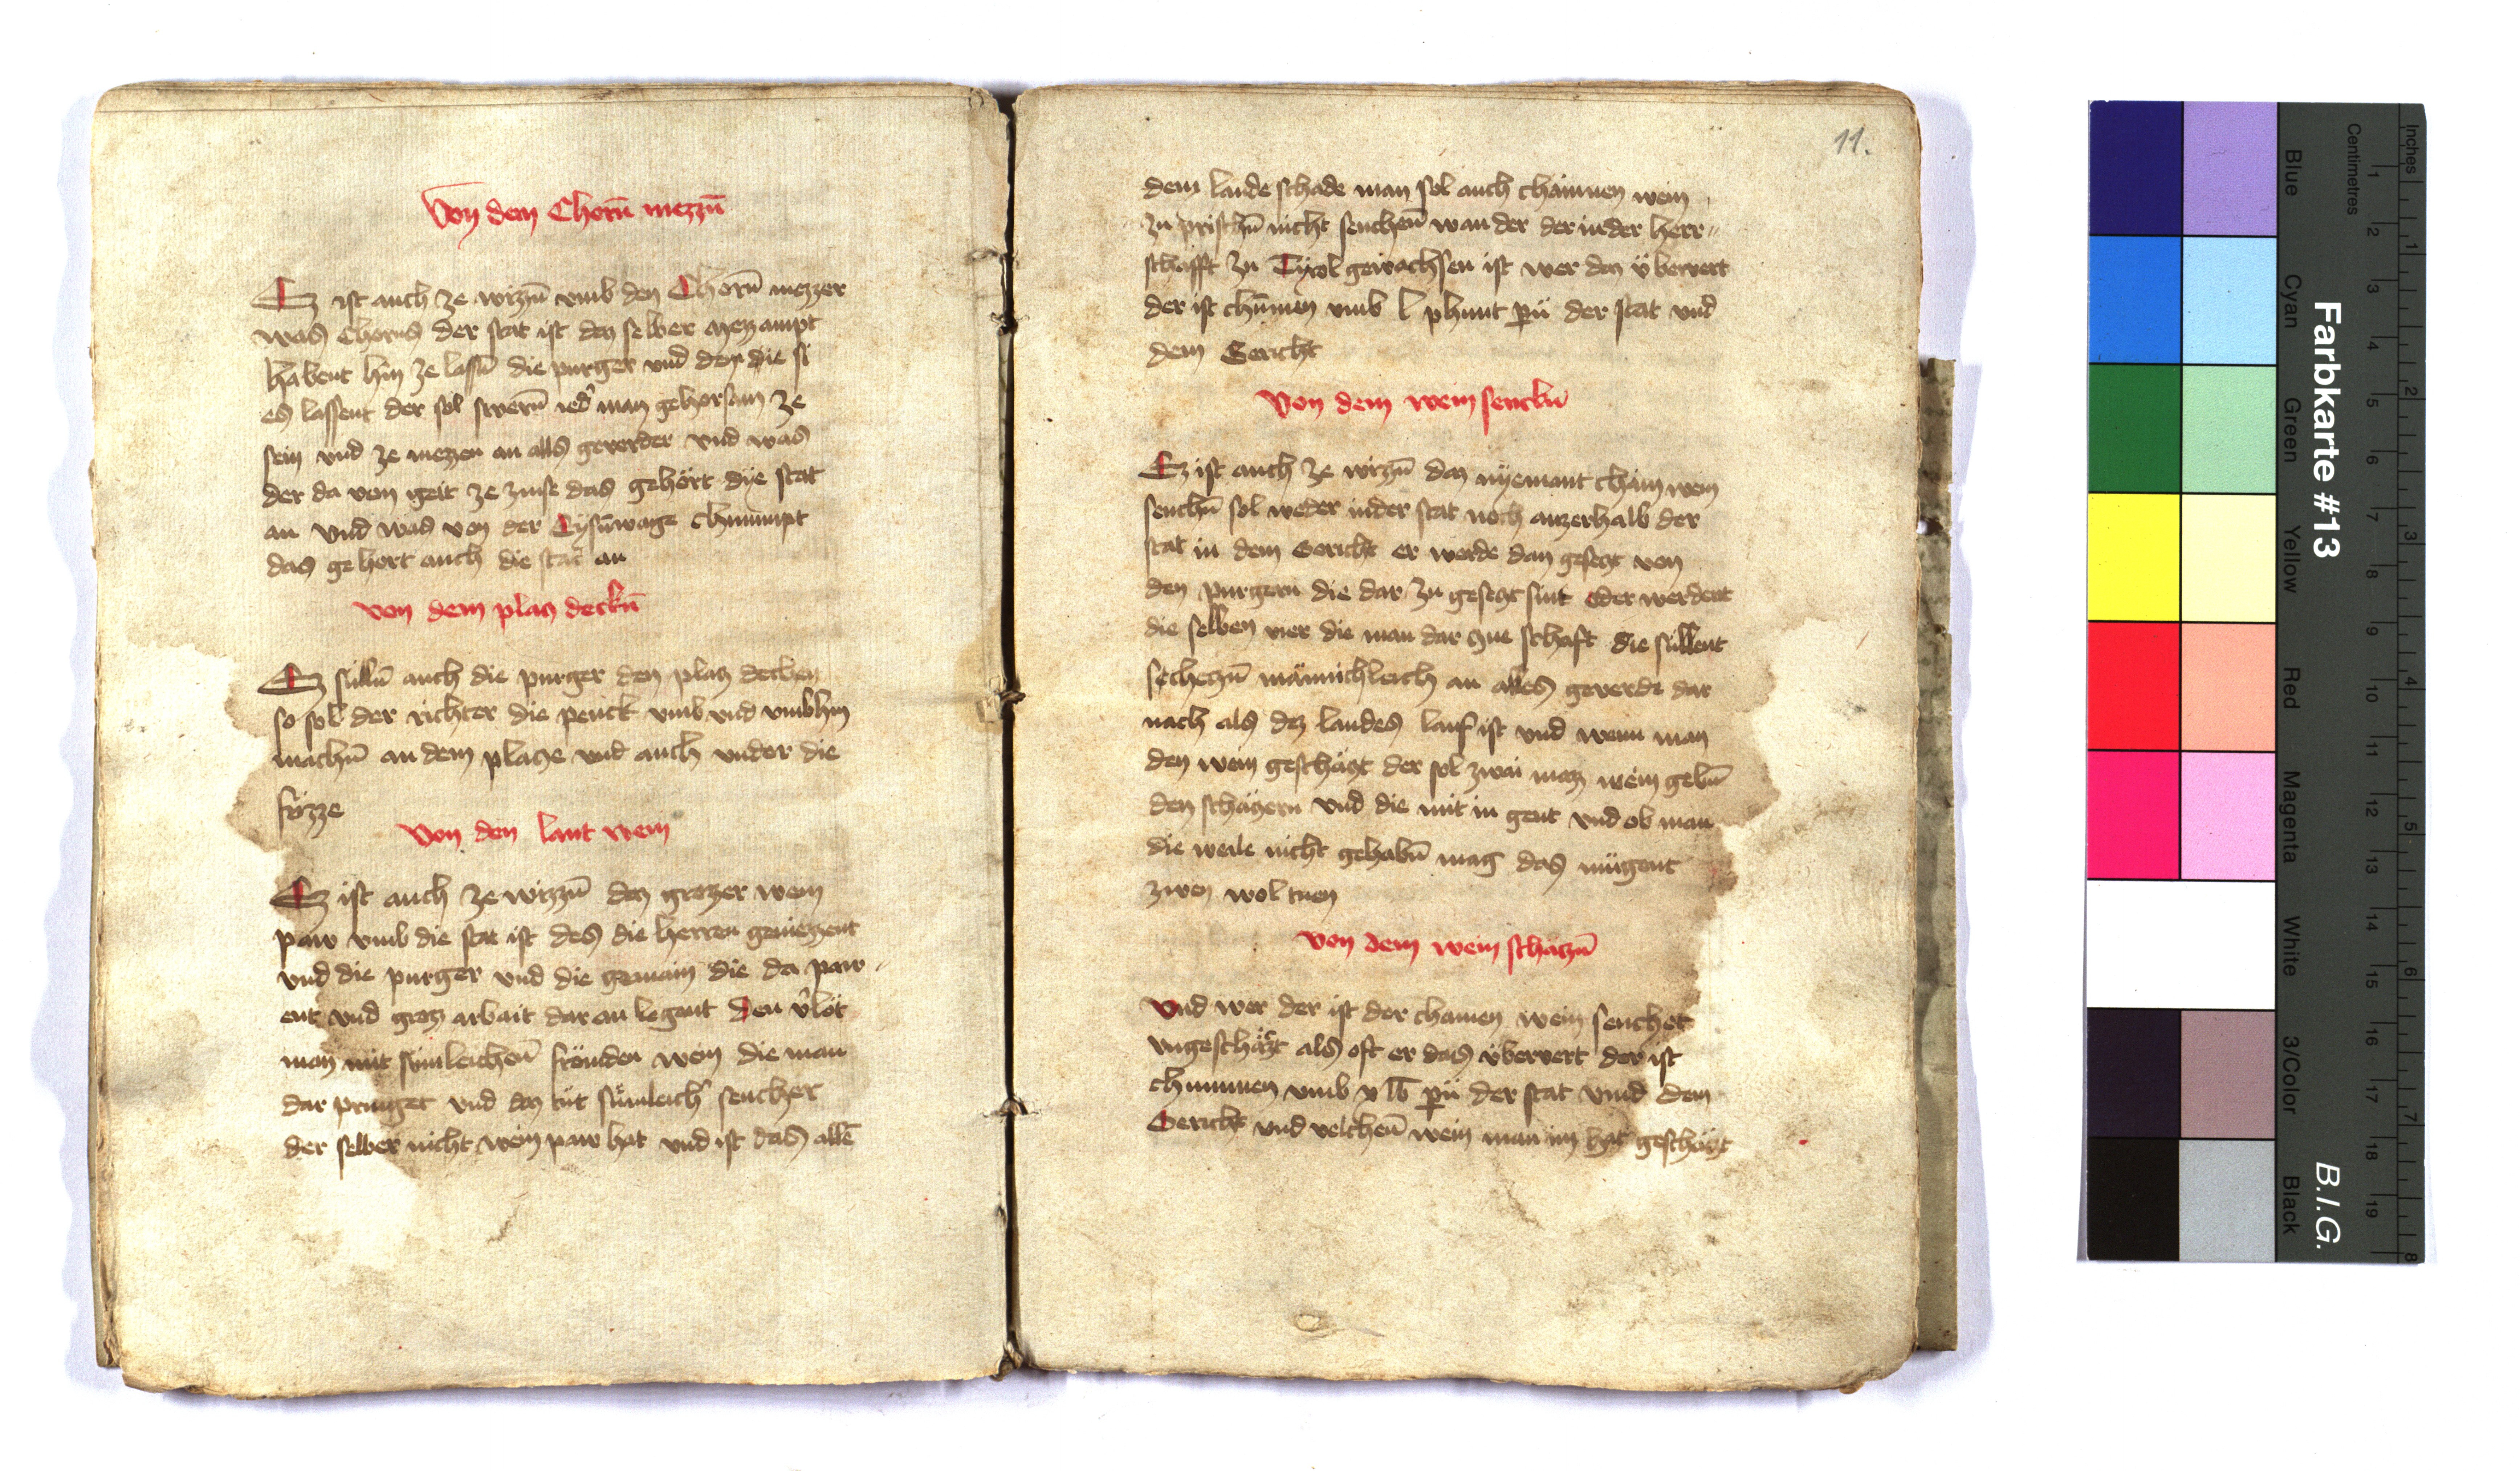 Von dem Chorn̄ mezzn̄
Ez ist auch ze wizzn̄ vmb den Chorn̄ mezzer
was Chorns der stat ist daz selber mezampt
habent hin ze lassn̄ die purger vnd dem die si
es lassent der sol swern̄ ied̄ man gehorsam ze
sein vnd ze mezzen an alls geverder vnd was
der da von geit ze zinse das gehört dÿe stat
an vnd was von der Eysn̄wage chnmmpt
das gehort auch die stat an
von dem plaz deckn̄
Ez sülln̄ auch die purger den plaz decken
so sol der richter die penck vmb vnd vmbhin
machn̄ an dem placze vnd auch vnder die
frizze
Von den lant wein
Ez ist auch ze wizzn̄ daz grozer wein
paw vmb die stat ist des die herren geniezzent
vnd die purger vnd die gemain die da paw
ent vnd groz arbait daran legent den v̄löt
man mit sümleichen̄ frömden wein die man
dar pringet vnd daz tüt sümleich sencher
der selber nicht wein paw hat vnd ist das alle
11.
dem lande schade man sol auch chainnen wein
zu prischn̄ nicht senchen̄ wan der der inder herr
schafft zu Tyrol gewachsen ist wer daz v̈bervert
der ist chümen vmb l phunt pn̄ der stat vnd
dem Gericht
Von dem wein senckn̄
Ez ist auch ze wizzn̄ daz nÿemant chain wein
senchn̄ sol weder inder stat noch auzerhalb der
stat in dem Gericht er werde dan gesetzt von
den purgern die dar zu gesetzt sint oder werdent
die selben vier die man dar zue schaft die süllent
schetzn̄ männichleich an alles geverde dar
nach als dez landes lauf ist vnd wenn man
den wein geschäczt der sol zwai maz wein gebn̄
den schäczern vnd die mit in gent vnd ob man
die weile nicht gehabn̄ mag das mügent
zwen wol tuen
von dem wein schaczn̄
Vnd wer der ist der chainen wein senchet
vngeschäczt als oft er das v̈bervert der ist
chummen vmb v lb pn̄ der stat vnnd dem
Gericht vnd welchen̄ wein man im hat geschäczt
Farbkarte #13
B.I.G.
Blue
Cyan
Green
Yellow
Red
Magenta
White
3/Color
Black
Centimetres
1 2 3 4 5 6 7 8 9 10 11 12 13 14 15 16 17 18 19
Inches
1 2 3 4 5 6 7 8